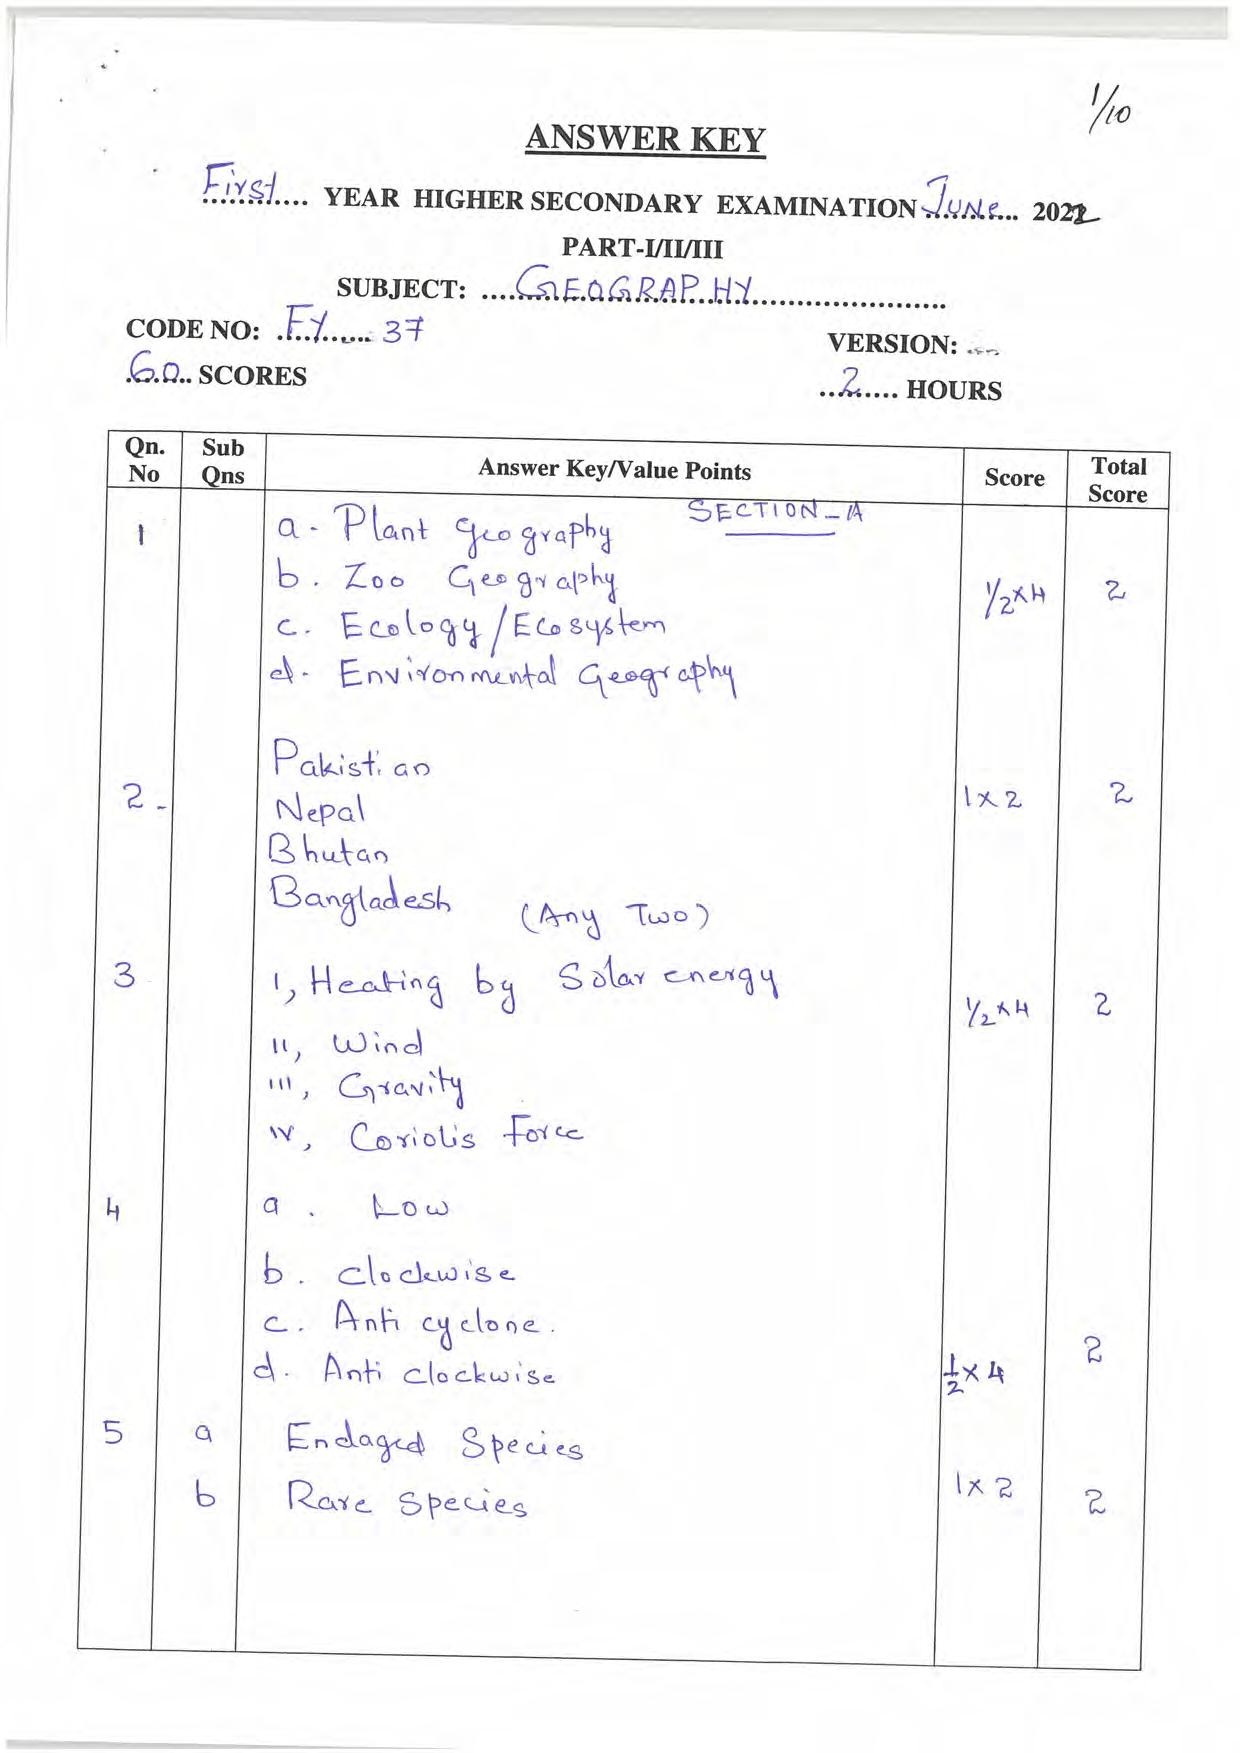 1/10
ANSWER KEY
First.... YEAR HIGHER SECONDARY EXAMINATION June... 2022
PART-I/II/III
SUBJECT: ....GEOGRAPHY........................
CODE NO: .FY..... 37
VERSION: ...
.60.. SCORES
..2..... HOURS
Qn. No Sub Qns Answer Key/Value Points Score Total Score
SECTION - A
1 a - Plant Geography
b. Zoo Geography
c. Ecology/Ecosystem 1/2×4 2
d - Environmental Geography
Pakistian
2 - Nepal 1×2 2
Bhutan
Bangladesh (Any Two)
3 I, Heating by Solar energy
1/2×4 2
II, Wind
III, Gravity
IV, Coriolis Force
4 a. Low
b. Clockwise
c. Anti cyclone.
d. Anti clockwise 1/2×4 2
5 a Endaged Species
b Rare Species 1×2 2